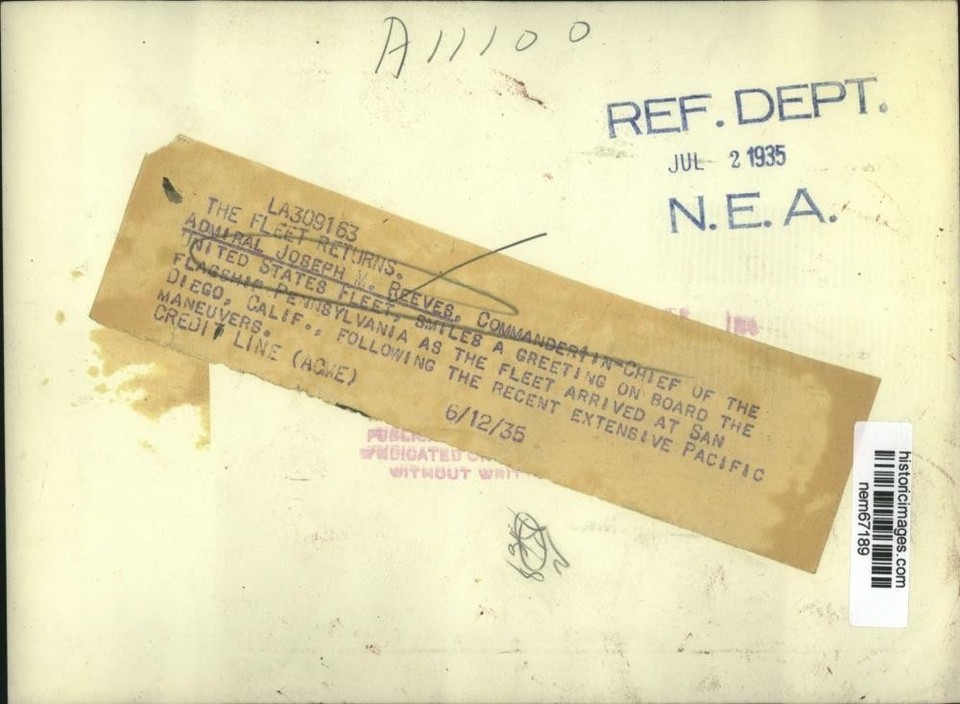 A11100
REF. DEPT.
JUL 2 1935
N.E.A.
LA309163
THE FLEET RETURNS.
ADMIRAL JOSEPH M. REEVES, COMMANDER-IN-CHIEF OF THE
UNITED STATES FLEET, SMILES A GREETING ON BOARD THE
FLAGSHIP PENNSYLVANIA AS THE FLEET ARRIVED AT SAN
DIEGO, CALIF., FOLLOWING THE RECENT EXTENSIVE PACIFIC
MANEUVERS.
CREDIT LINE (ACME)
6/12/35
WITHOUT
historicimages.com
nem67189